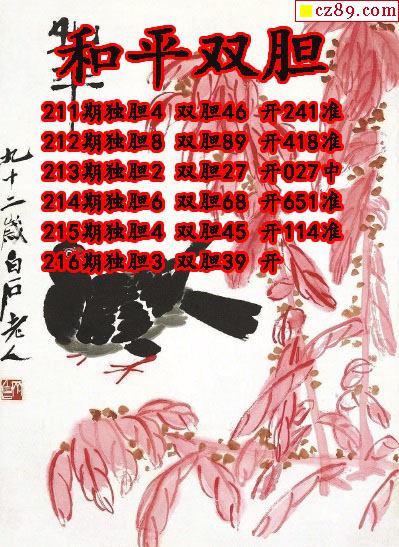 cz89.com
和平双胆
211期独胆4 双胆46 开241准
212期独胆8 双胆89 开418准
213期独胆2 双胆27 开027中
214期独胆6 双胆68 开651准
215期独胆4 双胆45 开114准
216期独胆3 双胆39 开
九十二岁白石老人